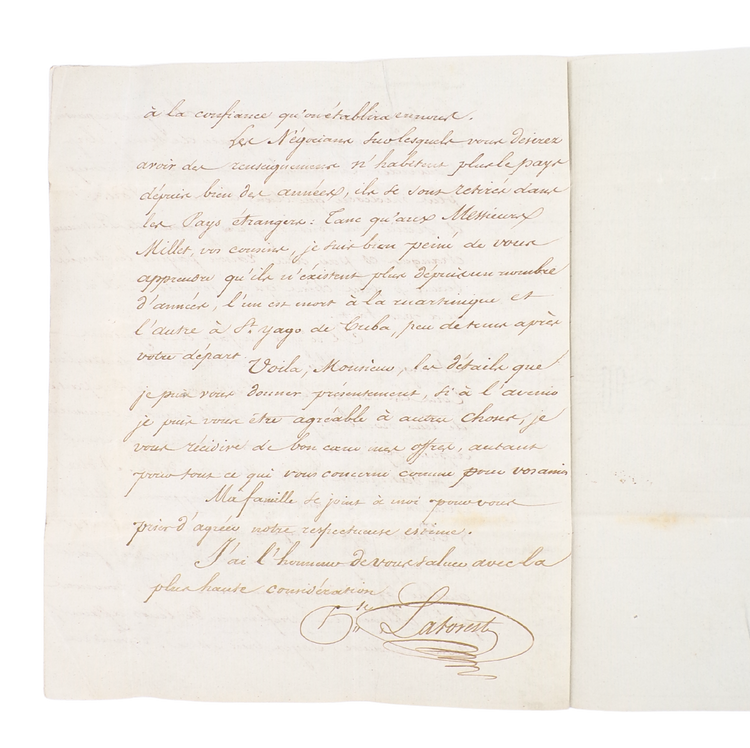 à la confiance qu'on établira en nous.
Les Négocians sur lesquels vous désirez
avoir des renseignemens n'habitent plus le pays
dépuis bien des années, ils se sont retirés dans
les Pays étrangers: Tant qu'aux Messieurs
Millet, vos cousins, je suis bien peiné de vous
apprendre qu'ils n'existent plus dépuis un nombre
d'années, l'un est mort à la martinique et
l'autre à St. yago de Cuba, peu de tems après
votre départ.
Voila, Monsieur, les détails que
je puis vous donner présentement, si à l'avenir
je puis vous être agréable à autre choses, je
vous récidive de bon cœur mes offres, autant
pour tout ce qui vous concerne comme pour vos amis
Ma famille se joint à moi pour vous
prier d'agréer notre respectueuse estime.
J'ai l'honneur de vous saluer avec la
plus haute considération
Laforest